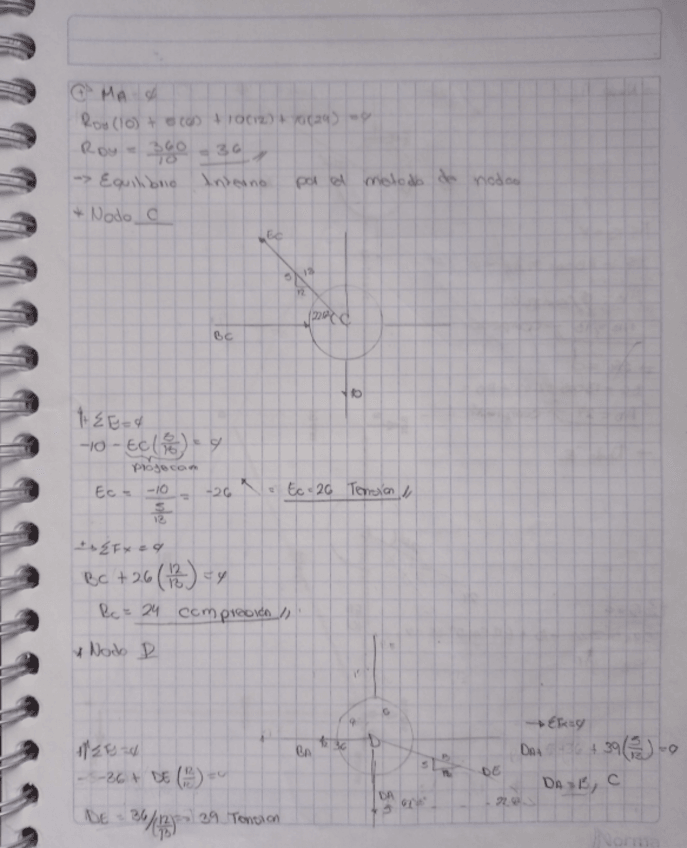 + MA = 0
RDx(10) + 0(0) + 10(12) + 10(24) = 0
RDx = 360/10 = 36
-> Equilibrio Interno por el metodo de nodos
* Nodo C
EC
5 13
12
C
BC
10
+ ΣFy = 0
-10 - EC(5/13) = 0
EC = -10/(5/13) = -26 = Ec = 26 Tensión //
+ ΣFx = 0
BC + 26(12/13) = 0
Bc = 24 compresión //
* Nodo D
BA 36 D
5
DE
DA
-> ΣFx = 0
+ 39(5/13) = 0
DA = 15, C
ΣF = 0
-36 + DE(12/13) = 0
DE = 36/(12/13) = 39 Tension
Norma